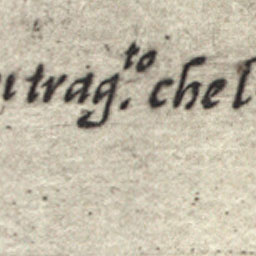 trag.to che